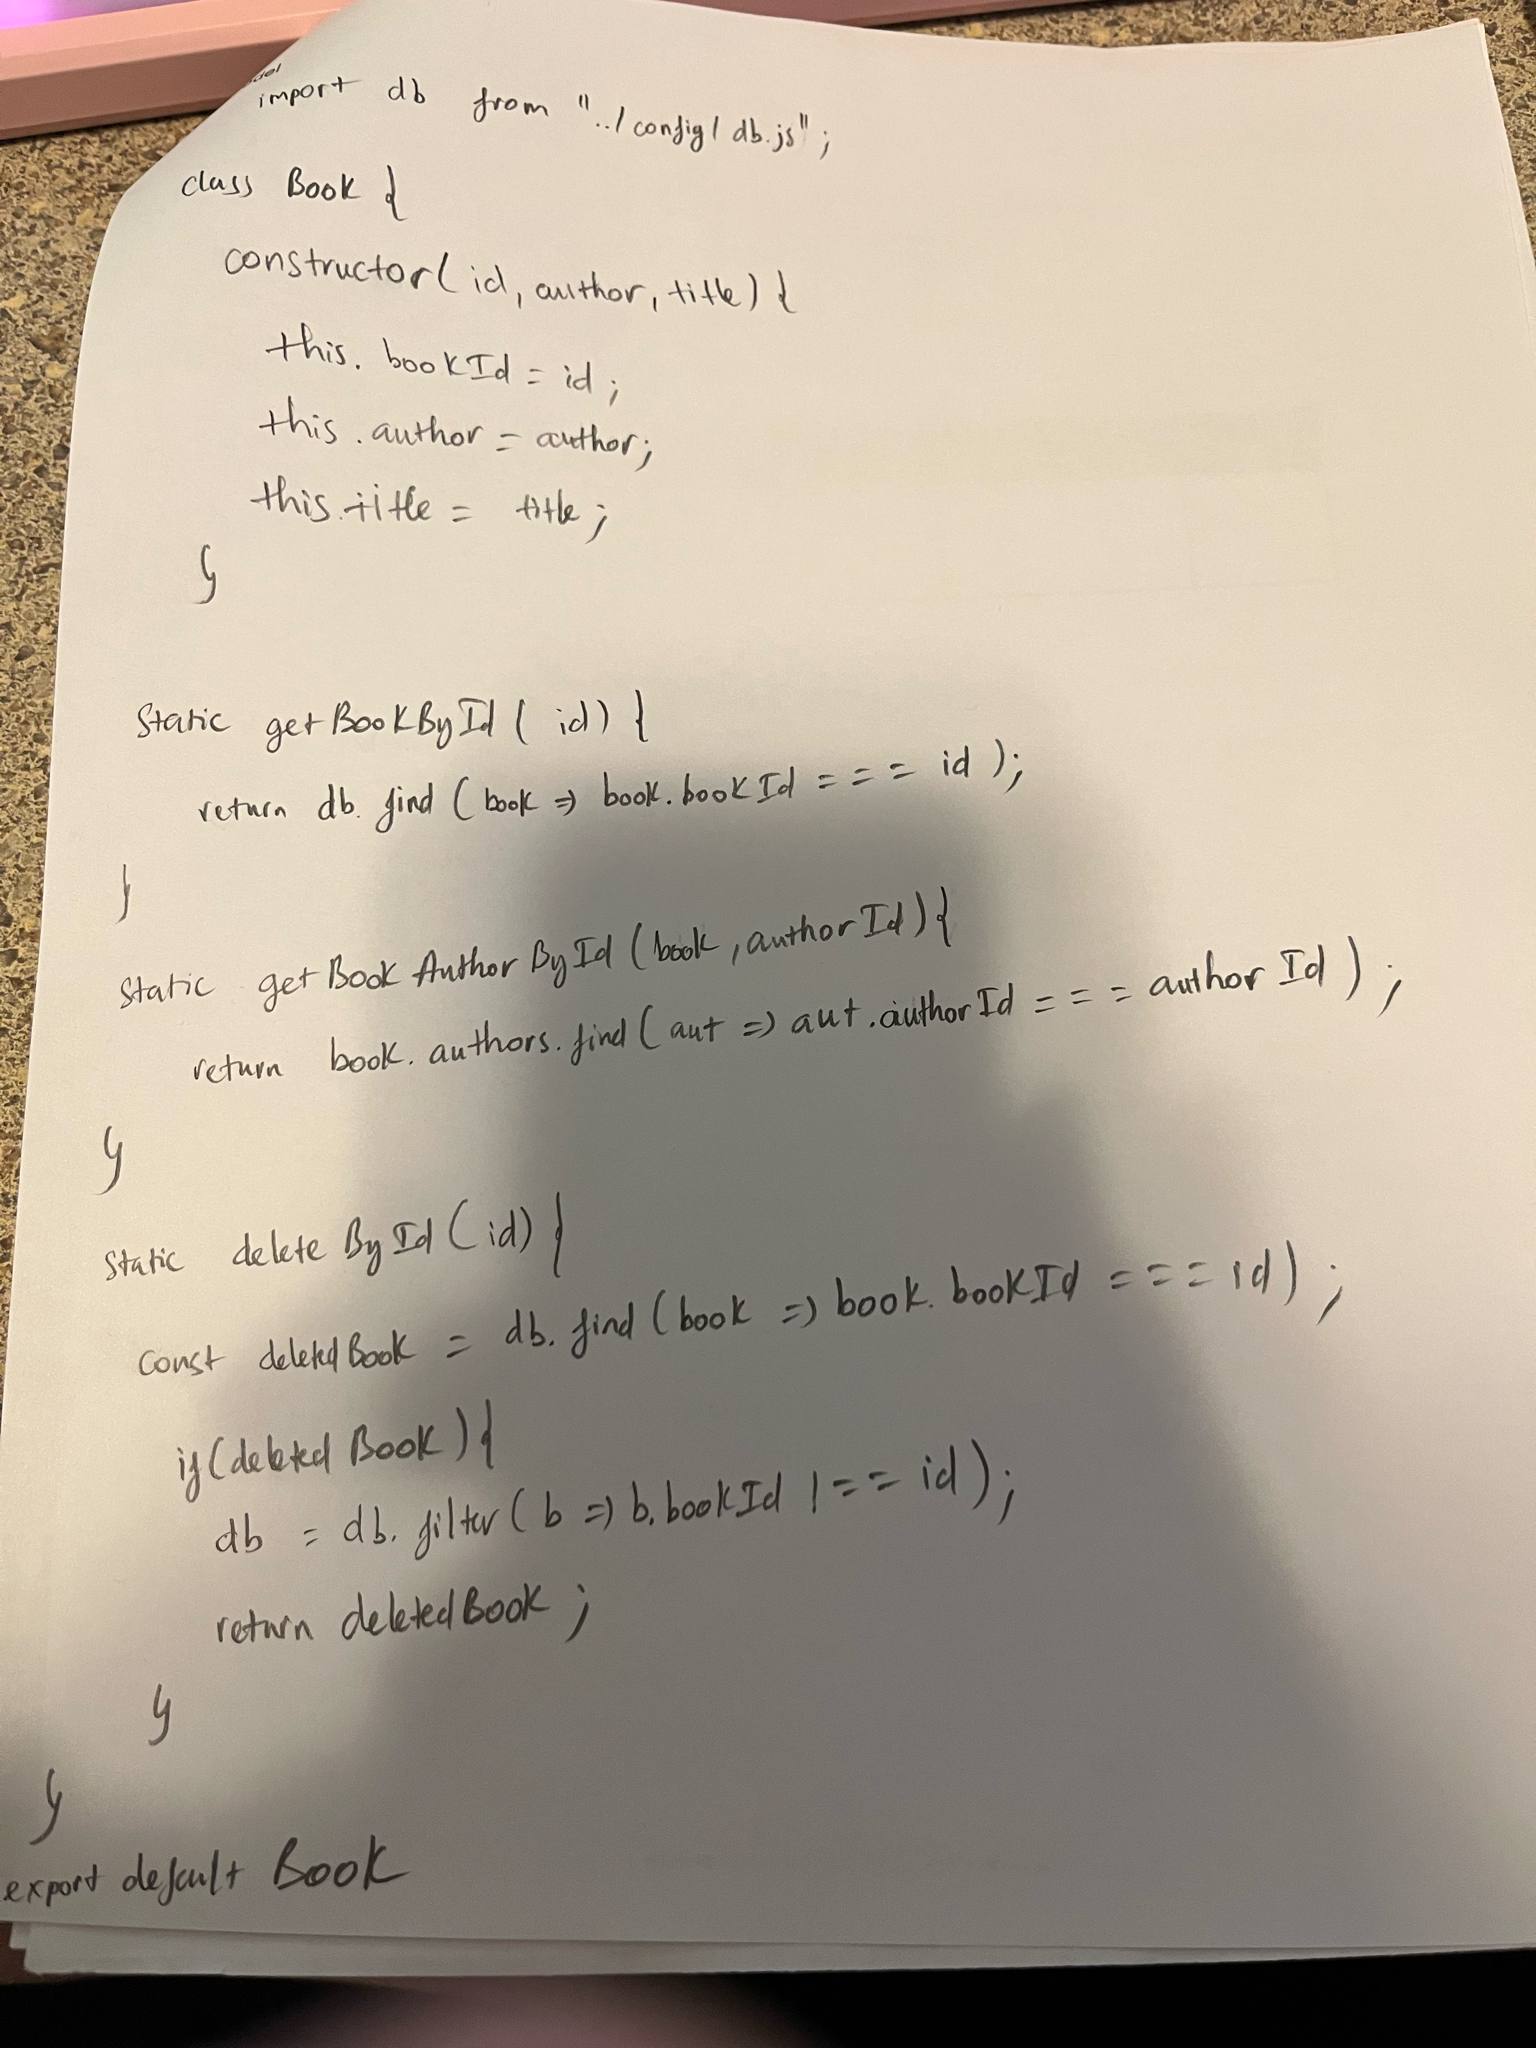 import db from "../config/db.js";
class Book {
constructor(id, author, title) {
this.bookId = id;
this.author = author;
this.title = title;
}
static getBookById(id) {
return db.find(book => book.bookId === id);
}
static getBookAuthorById(book, authorId) {
return book.authors.find(aut => aut.authorId === authorId);
}
static deleteById(id) {
const deletedBook = db.find(book => book.bookId === id);
if(deletedBook) {
db = db.filter(b => b.bookId !== id);
return deletedBook;
}
}
export default Book